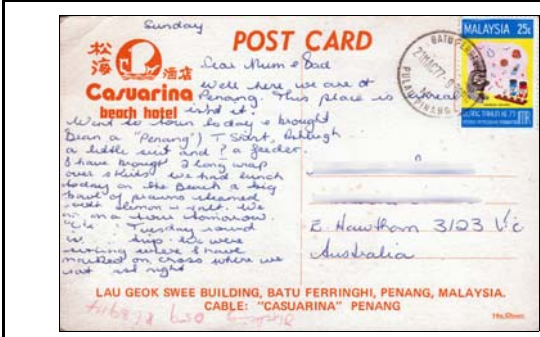 Sunday
POST CARD
松
海
酒店
Casuarina
beach hotel
MALAYSIA 25c
Dear Mum & Dad
Well here we are at
Penang. This place is
isn't it.
Went to town today & brought
Dean a "Penang") T Shirt,
a little suit and ? a feeder.
I have brought 2 long wrap
over skirts we had lunch
today on the Beach a big
bowl of prawns steamed
with
on a tour tomorrow.
Tuesday round
trip. We were
where I have
marked on cross where we
sat
E. Hawthorn 3123 Vic
Australia
LAU GEOK SWEE BUILDING, BATU FERRINGHI, PENANG, MALAYSIA.
CABLE: "CASUARINA" PENANG